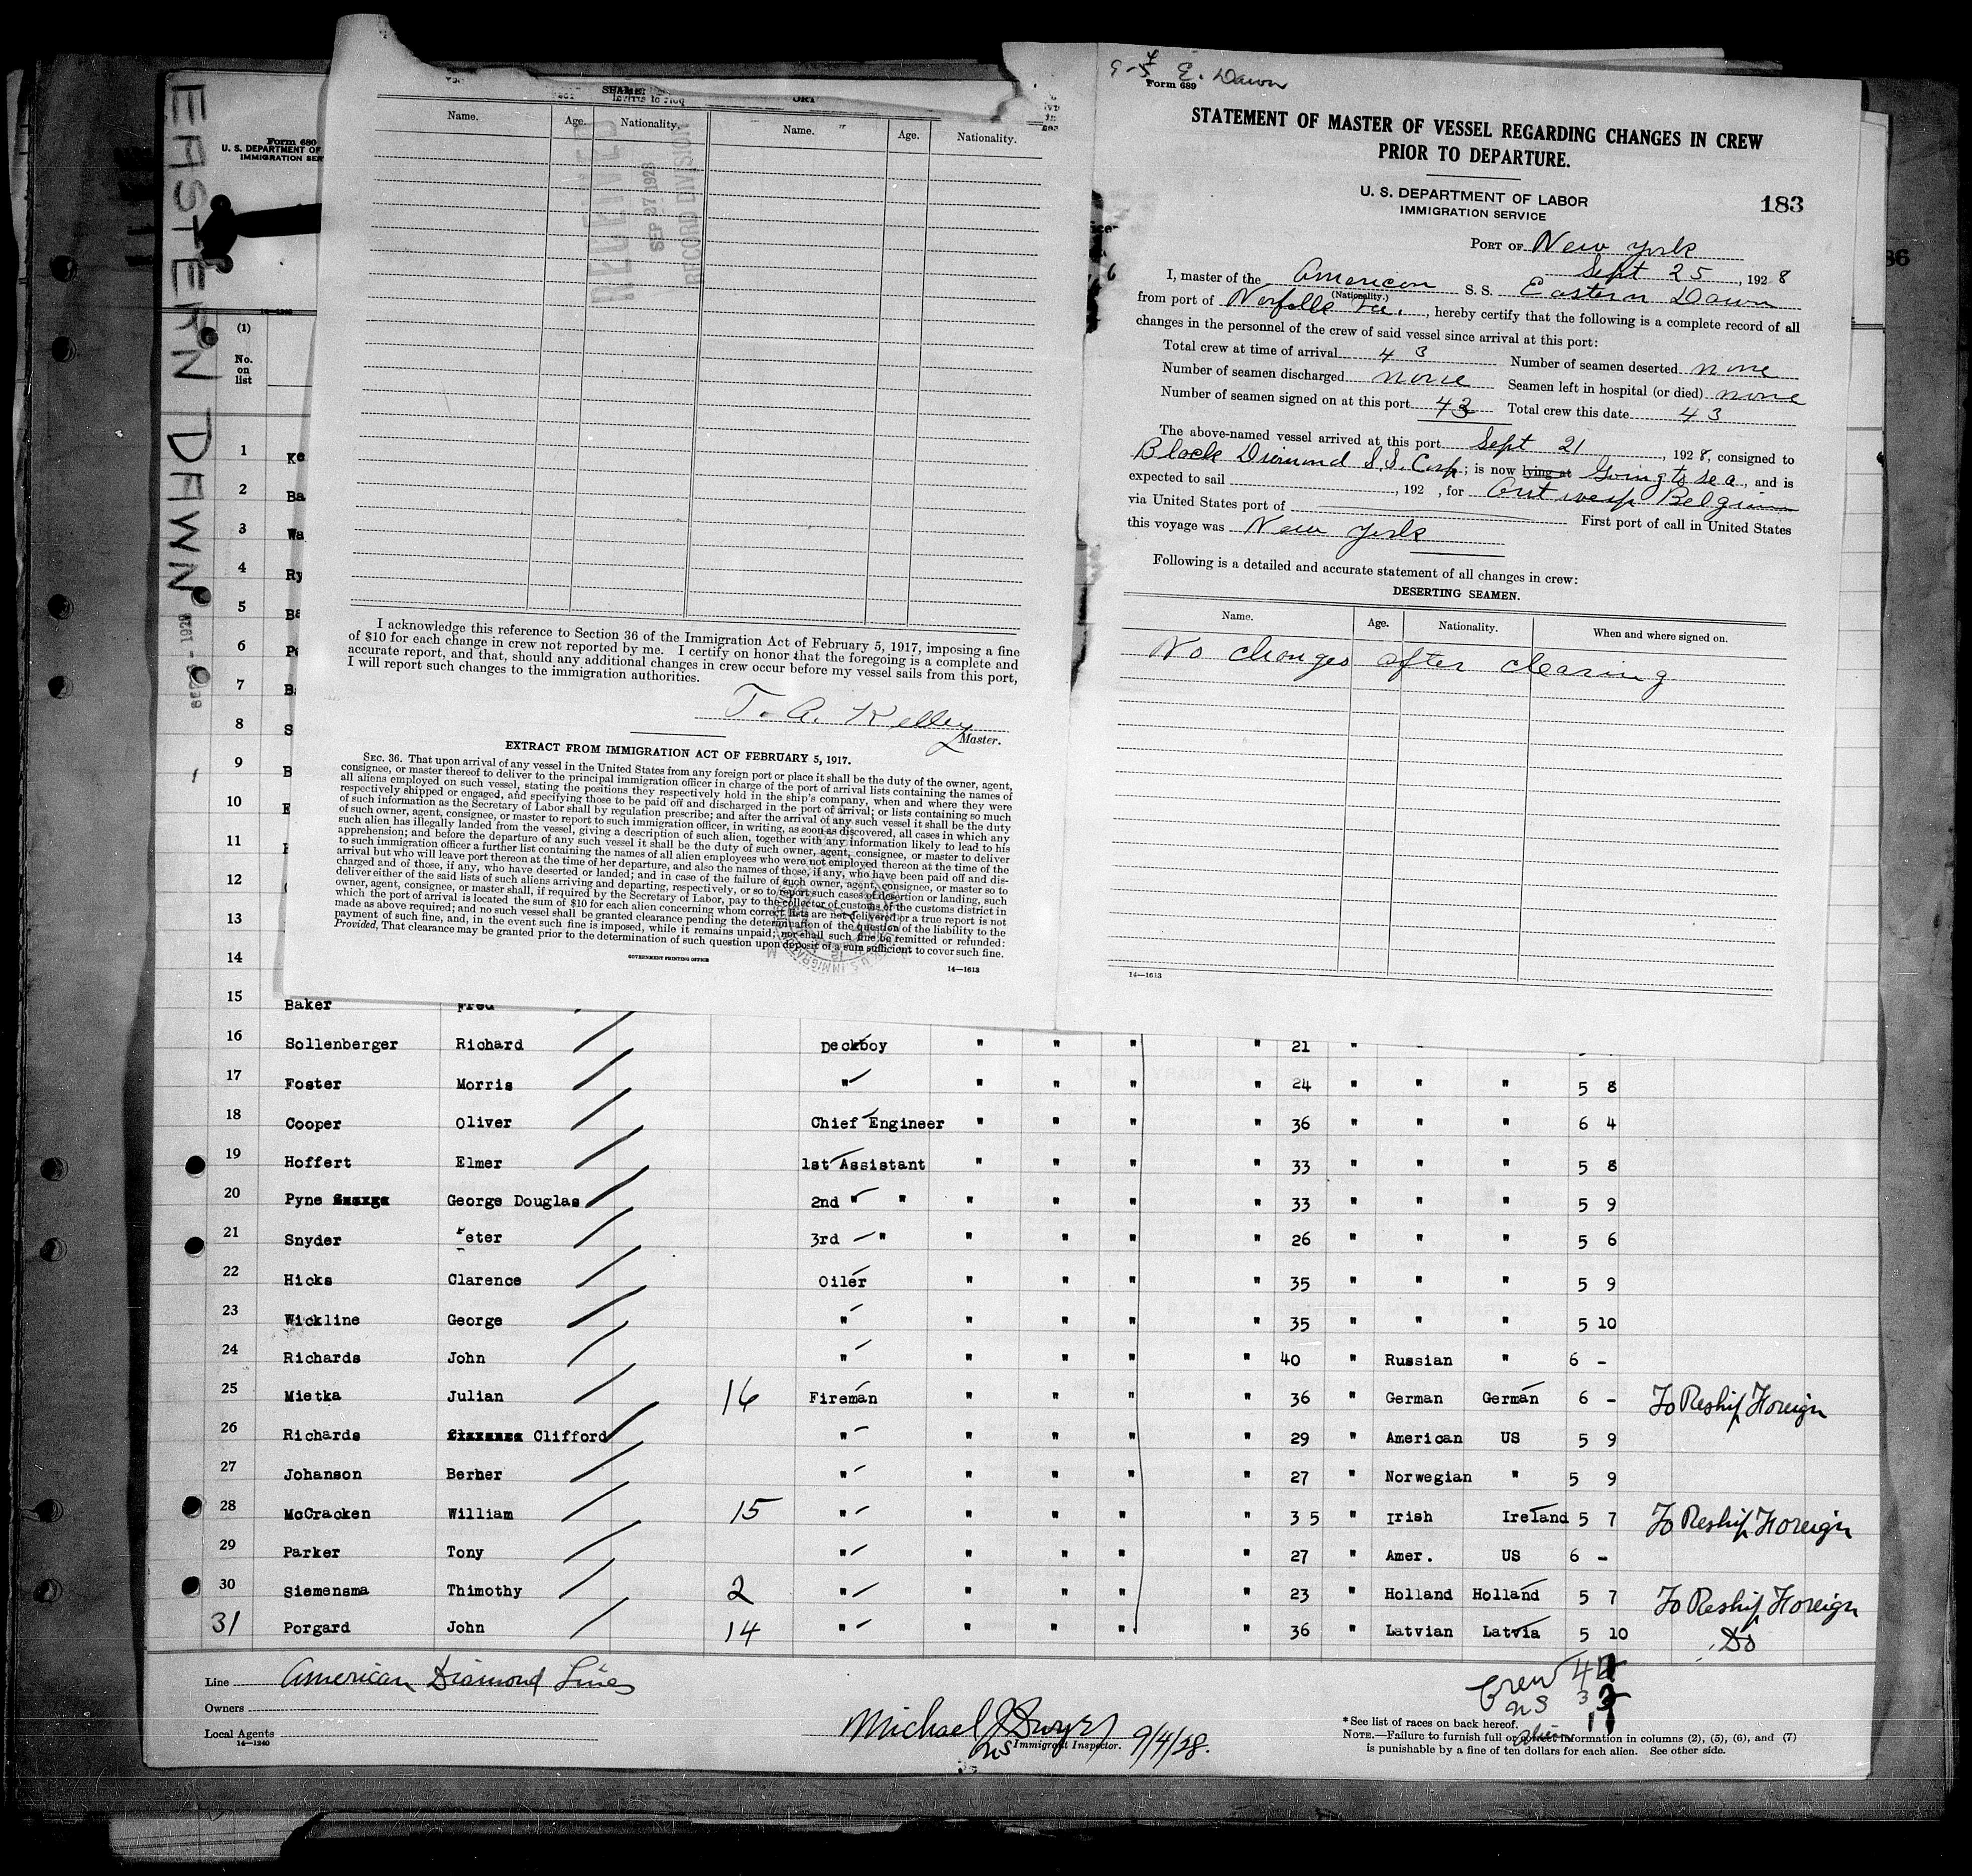 EASTERN DAWN
Form 680
U. S. DEPARTMENT OF
IMMIGRATION SER
14—1240
(1)
No.
on
list
Name. Age. Nationality. Name. Age. Nationality.
RECEIVED
SEP 27 1928
RECORD DIVISION
I acknowledge this reference to Section 36 of the Immigration Act of February 5, 1917, imposing a fine
of $10 for each change in crew not reported by me. I certify on honor that the foregoing is a complete and
accurate report, and that, should any additional changes in crew occur before my vessel sails from this port,
I will report such changes to the immigration authorities.
T. A. Kelley
Master.
EXTRACT FROM IMMIGRATION ACT OF FEBRUARY 5, 1917.
SEC. 36. That upon arrival of any vessel in the United States from any foreign port or place it shall be the duty of the owner, agent,
consignee, or master thereof to deliver to the principal immigration officer in charge of the port of arrival lists containing the names of
all aliens employed on such vessel, stating the positions they respectively hold in the ship's company, when and where they were
respectively shipped or engaged, and specifying those to be paid off and discharged in the port of arrival; or lists containing so much
of such information as the Secretary of Labor shall by regulation prescribe; and after the arrival of any such vessel it shall be the duty
of such owner, agent, consignee, or master to report to such immigration officer, in writing, as soon as discovered, all cases in which any
such alien has illegally landed from the vessel, giving a description of such alien, together with any information likely to lead to his
apprehension; and before the departure of any such vessel it shall be the duty of such owner, agent, consignee, or master to deliver
to such immigration officer a further list containing the names of all alien employees who were not employed thereon at the time of the
arrival but who will leave port thereon at the time of her departure, and also the names of those, if any, who have been paid off and dis-
charged and of those, if any, who have deserted or landed; and in case of the failure of such owner, agent, consignee, or master so to
deliver either of the said lists of such aliens arriving and departing, respectively, or so to report such cases of desertion or landing, such
owner, agent, consignee, or master shall, if required by the Secretary of Labor, pay to the collector of customs of the customs district in
which the port of arrival is located the sum of $10 for each alien concerning whom correct lists are not delivered or a true report is not
made as above required; and no such vessel shall be granted clearance pending the determination of the question of the liability to the
payment of such fine, and, in the event such fine is imposed, while it remains unpaid; nor shall such fine be remitted or refunded:
Provided, That clearance may be granted prior to the determination of such question upon deposit of a sum sufficient to cover such fine.
GOVERNMENT PRINTING OFFICE
14—1613
E. Dawn
Form 689
STATEMENT OF MASTER OF VESSEL REGARDING CHANGES IN CREW
PRIOR TO DEPARTURE.
U. S. DEPARTMENT OF LABOR
IMMIGRATION SERVICE
183
86
PORT OF New York
Sept 25, 1928
I, master of the American S. S. Eastern Dawn
(Nationality.)
from port of Norfolk Va., hereby certify that the following is a complete record of all
changes in the personnel of the crew of said vessel since arrival at this port:
Total crew at time of arrival 43 Number of seamen deserted none
Number of seamen discharged none Seamen left in hospital (or died) none
Number of seamen signed on at this port 43 Total crew this date 43
The above-named vessel arrived at this port Sept 21, 1928, consigned to
Black Diamond S.S. Corp; is now lying at Going to sea, and is
expected to sail , 192 , for Antwerp Belgium
via United States port of First port of call in United States
this voyage was New York
Following is a detailed and accurate statement of all changes in crew:
DESERTING SEAMEN.
Name. Age. Nationality. When and where signed on.
No changes after clearing
14—1613
1 Ke
2 Ba
3 Wa
4 Ry
5 Ba
6 Pe
7 B
8 S
9 B
10
11
12
13
14
15 Baker Fred
16 Sollenberger Richard Deckboy " " " " 21 "
17 Foster Morris " " " " " 24 " " " 5 8
18 Cooper Oliver Chief Engineer " " " " 36 " " " 6 4
19 Hoffert Elmer 1st Assistant " " " " 33 " " " 5 8
20 Pyne George Douglas 2nd " " " " " " 33 " " " 5 9
21 Snyder Peter 3rd " " " " " 26 " " " 5 6
22 Hicks Clarence Oiler " " " " 35 " " " 5 9
23 Wickline George " " " " " 35 " " " 5 10
24 Richards John " " " " " 40 " Russian " 6 -
25 Mietka Julian 16 Fireman " " " " 36 " German German 6 - To Reship Foreign
26 Richards Clifford " " " " " 29 " American US 5 9
27 Johanson Berher " " " " " 27 " Norwegian " 5 9
28 McCracken William 15 " " " " " 35 " Irish Ireland 5 7 To Reship Foreign
29 Parker Tony " " " " " 27 " Amer. US 6 -
30 Siemensma Thimothy 2 " " " " " 23 " Holland Holland 5 7 To Reship Foreign
31 Porgard John 14 " " " " " 36 " Latvian Latvia 5 10 Do
Line American Diamond Lines
Owners
Local Agents
14—1240
Michael J Dwyer 9/4/28.
Immigrant Inspector.
Crew
US
alien 11
*See list of races on back hereof.
NOTE.—Failure to furnish full or correct information in columns (2), (5), (6), and (7)
is punishable by a fine of ten dollars for each alien. See other side.